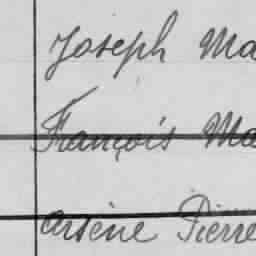 Joseph Ma
François Ma
Arsène Pierre